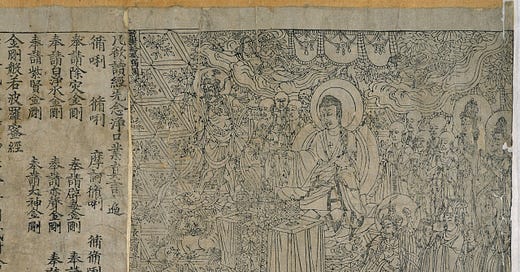 凡欲讀經先念淨口業真言一遍
脩唎 脩唎 摩訶脩唎 脩脩唎
奉請除灾金剛 奉請辟毒金剛
奉請白淨水金剛 奉請赤聲金剛
奉請紫賢金剛 奉請大神金剛
金剛般若波羅蜜經